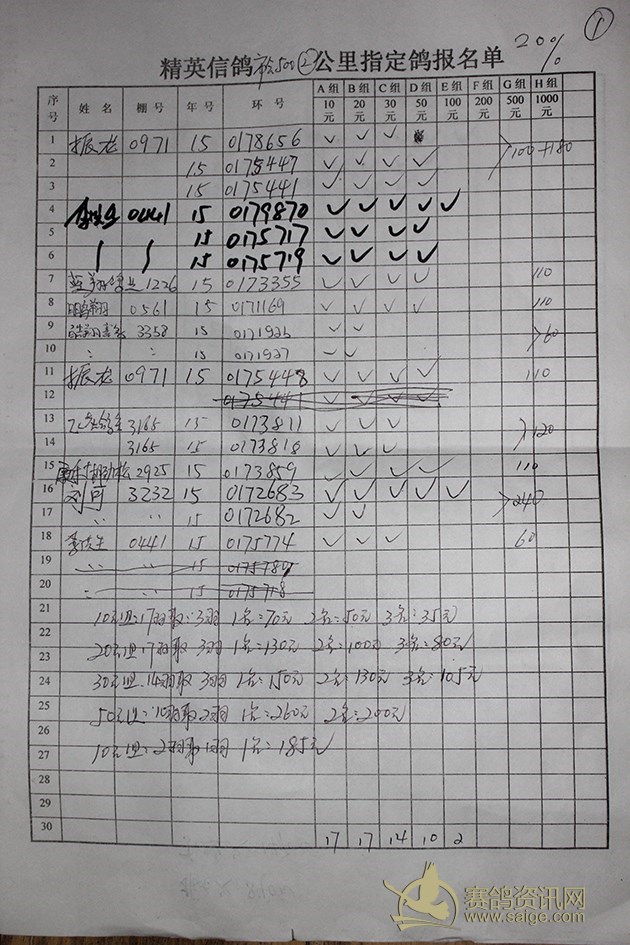 ①
20%
精英信鸽 500 ② 公里指定鸽报名单
序号 姓名 棚号 年号 环号 A组 10元 B组 20元 C组 30元 D组 50元 E组 100元 F组 200元 G组 500元 H组 1000元
1 振龙 0971 15 0178656 ✓ ✓ ✓
2 15 0175447 ✓ ✓ ✓ ✓ 100+180
3 15 0175441 ✓ ✓ ✓ ✓
4 0441 15 0179870 ✓ ✓ ✓ ✓ ✓
5 15 0175717 ✓ ✓ ✓ ✓
6 15 0175719 ✓ ✓ ✓ ✓
7 1226 15 0173355 ✓ ✓ ✓ ✓ 110
8 鹏翔 0561 15 0171169 ✓ ✓ ✓ ✓ 110
9 3358 15 0171926 ✓ ✓ 60
10 15 0171927 ✓ ✓
11 振龙 0971 15 0175448 ✓ ✓ ✓ ✓ 110
12 0175441 ✓ ✓ ✓ ✓
13 3165 15 0173811 ✓ ✓ ✓
14 3165 15 0173818 ✓ ✓ ✓ 120
15 2925 15 0173859 ✓ ✓ ✓ ✓ 110
16 刘可 3232 15 0172683 ✓ ✓ ✓ ✓ ✓
17 15 0172682 ✓ ✓ 240
18 李先生 0441 15 0175774 ✓ ✓ ✓ 60
19 15
20 15 0175718
21 10元组:17羽取:3羽 1名:70元 2名:50元 3名:35元
22
23 20元组:17羽取 3羽 1名:130元 2名:100元 3名:80元
24 30元组:14羽取 3羽 1名:150元 2名:130元 3名:105元
25 50元组:10羽取2羽 1名:260元 2名:200元
26
27 10元组:2羽取1羽 1名:185元
28
29
30 17 17 14 10 2
赛鸽资讯网
www.saige.com